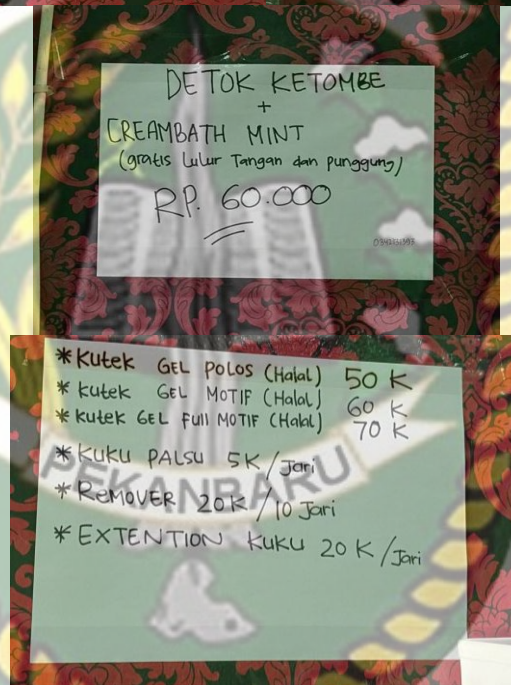 DETOK KETOMBE
+
CREAMBATH MINT
(gratis Lulur Tangan dan punggung)
RP. 60.000
*Kutek GEL POLOS (Halal) 50 K
*Kutek GEL MOTIF (Halal) 60 K
*Kutek GEL Full MOTIF (Halal) 70 K
*KUKU PALSU 5K/Jari
PEKANBARU
*ReMOVER 20K/10 Jari
*EXTENTION KUKU 20 K/Jari